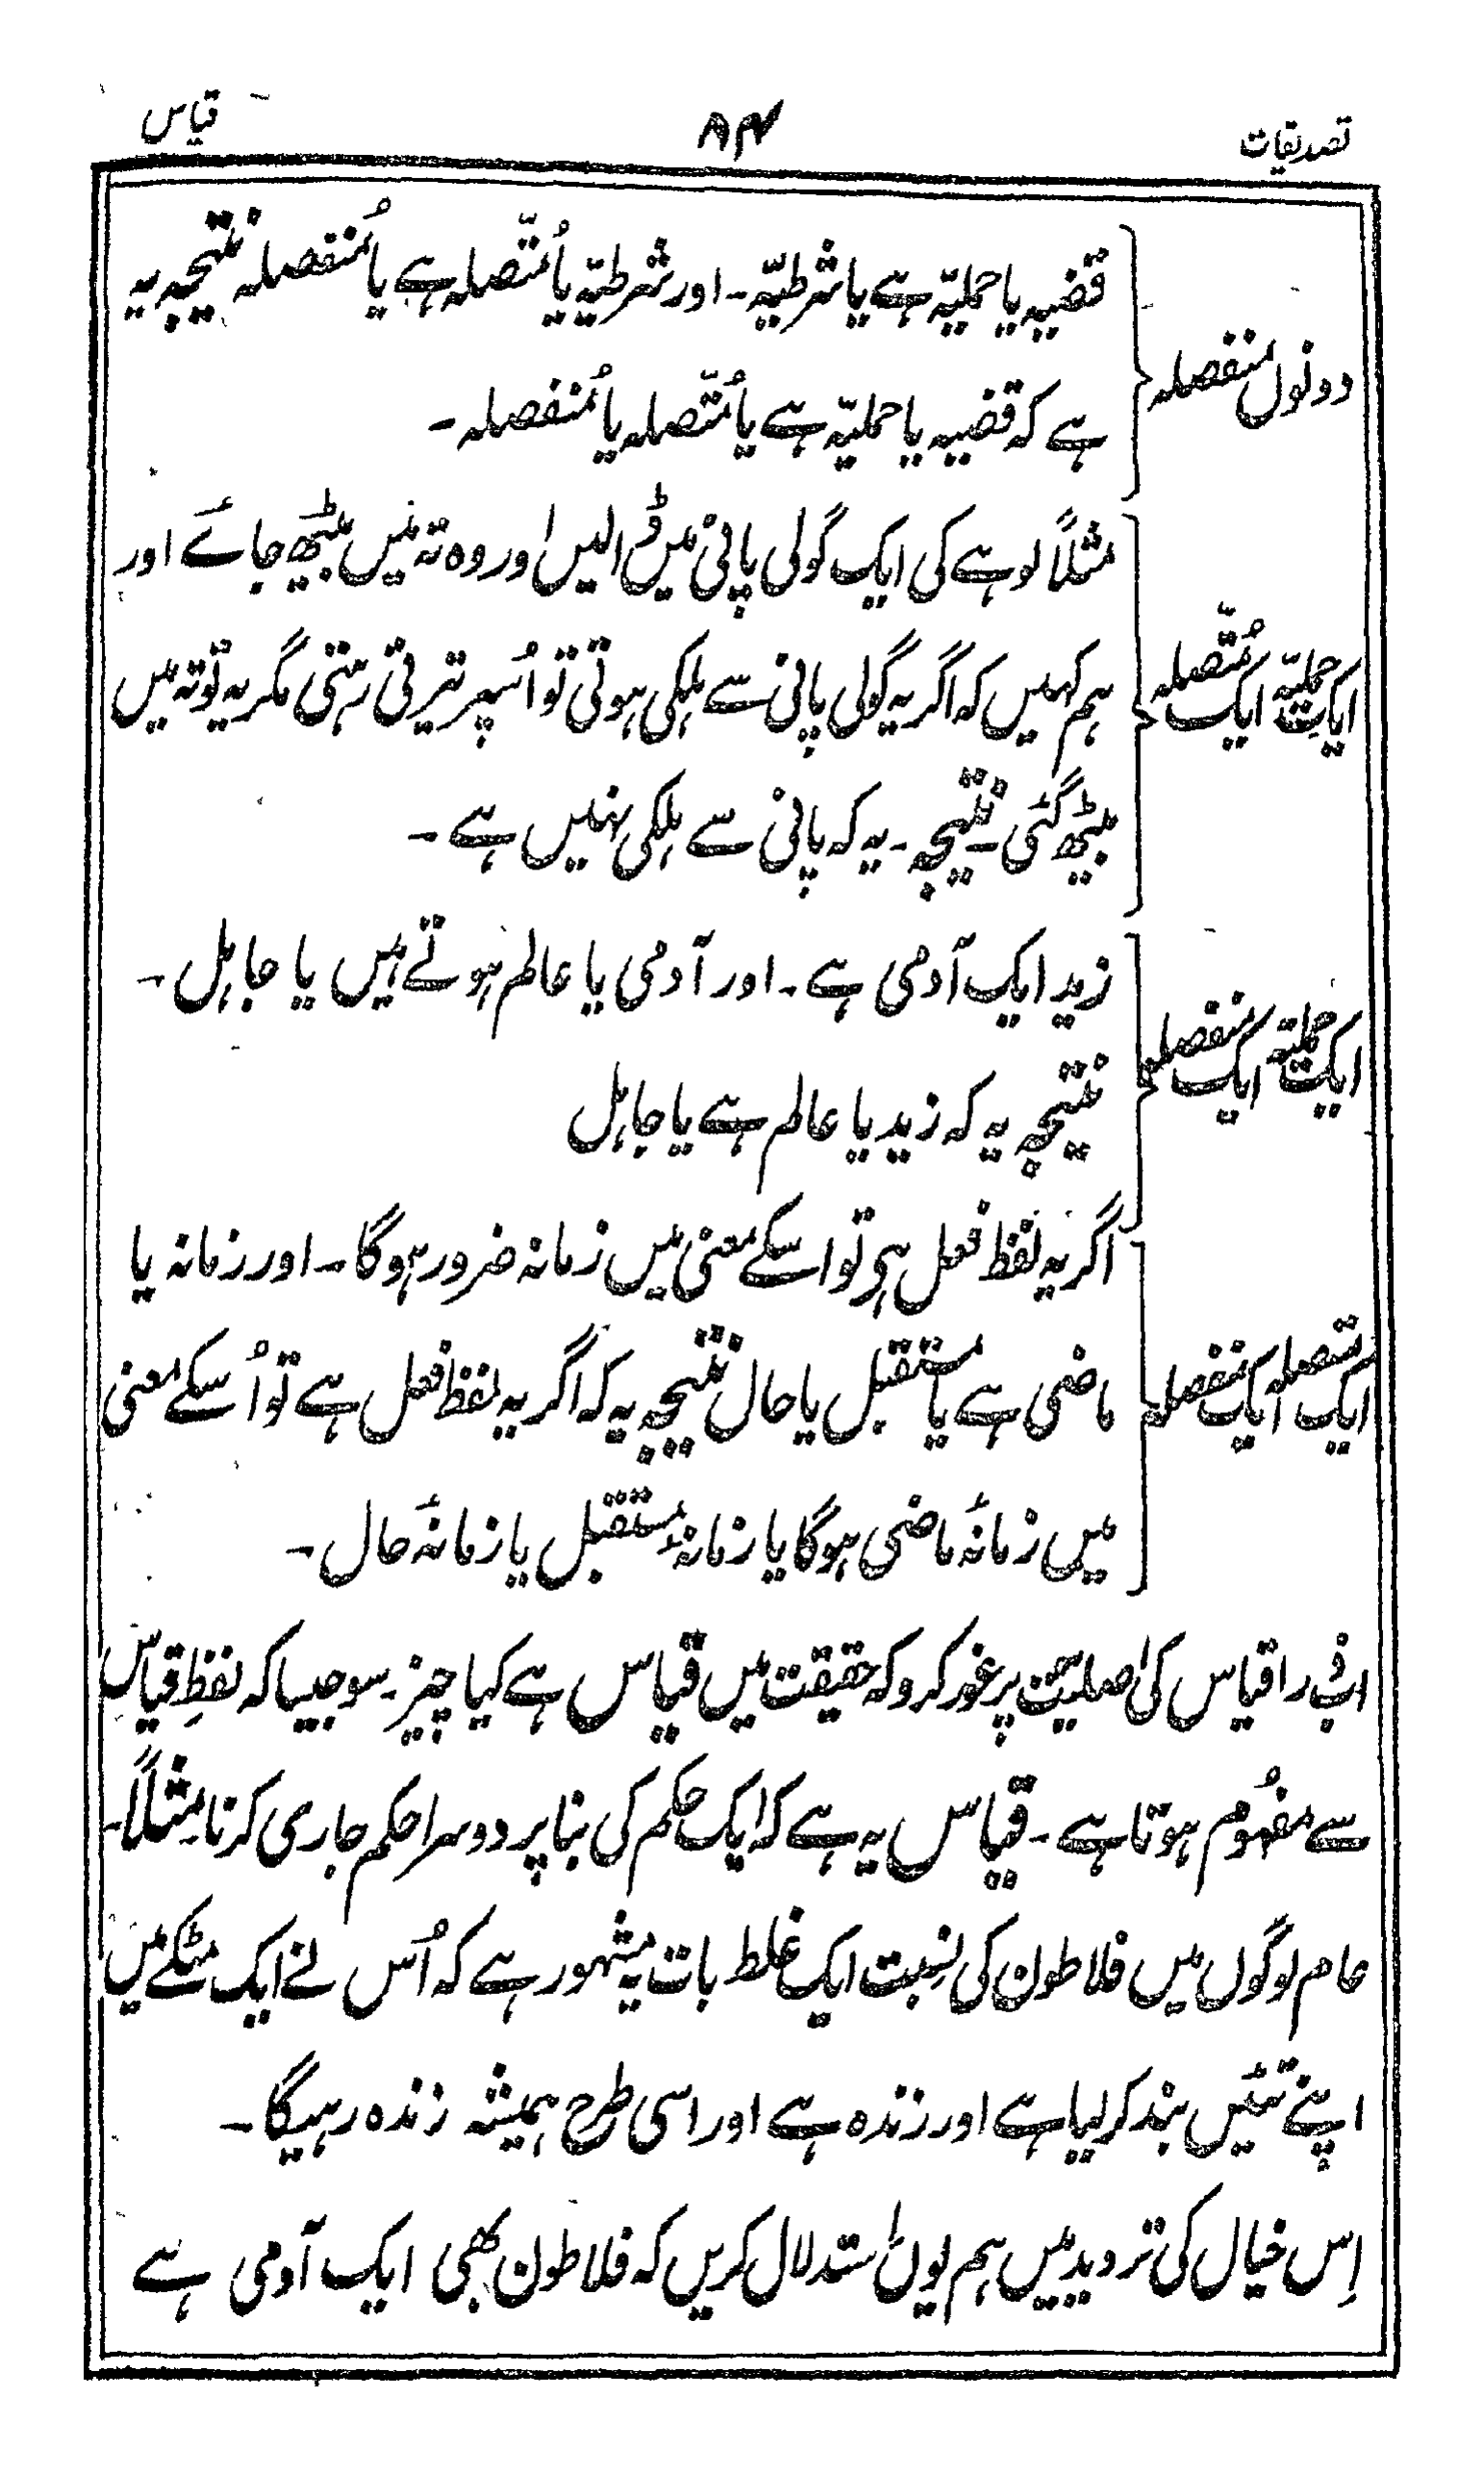 تصدیقات
۸۴
قیاس
دونوں منفصلہ
قضیہ یا حملیّہ ہے یا شرطیّہ۔ اور شرطیّہ یا مُتّصلہ ہے یا مُنفصلہ نتیجہ یہ
ہے کہ قضیہ یا حملیّہ ہے یا مُتّصلہ یا مُنفصلہ۔
ایک حملیّہ ایک مُتّصلہ
مثلاً لوہے کی ایک گولی پانی میں ڈالیں اور وہ تہ میں بیٹھ جائے اور
ہم کہیں کہ اگر یہ گولی پانی سے ہلکی ہوتی تو اُسپر تیرتی رہتی مگر یہ تو تہ میں
بیٹھ گئی۔ نتیجہ۔ یہ کہ پانی سے ہلکی نہیں ہے۔
ایک حملیّہ ایک منفصلہ
زید ایک آدمی ہے۔ اور آدمی یا عالم ہوتے ہیں یا جاہل۔
نتیجہ یہ کہ زید یا عالم ہے یا جاہل
ایک متصلہ ایک منفصلہ
اگر یہ لفظ فعل ہی تو اسکے معنی میں زمانہ ضرور ہوگا۔ اور زمانہ یا
ماضی ہے یا مستقبل یا حال نتیجہ یہ کہ اگر یہ لفظ فعل ہے تو اُسکے معنی
میں زمانۂ ماضی ہوگا یا زمانۂ مستقبل یا زمانۂ حال۔
اب ذرا قیاس کی اصلیت پر غور کرو کہ حقیقت میں قیاس ہے کیا چیز۔ سو جیسا کہ لفظِ قیاس
سے مفہُوم ہوتا ہے۔ قیاس یہ ہے کہ ایک حکم کی بنا پر دوسرا حکم جاری کرنا۔ مثلاً۔
عام لوگوں میں فلاطون کی نسبت ایک غلط بات یہ مشہور ہے کہ اُس نے ایک مٹکے میں
اپنے تئیں بند کر لیا ہے اور زندہ ہے اور اسی طرح ہمیشہ زندہ رہیگا۔
اِس خیال کی تردید میں ہم یوں استدلال کریں کہ فلاطون بھی ایک آدمی ہے